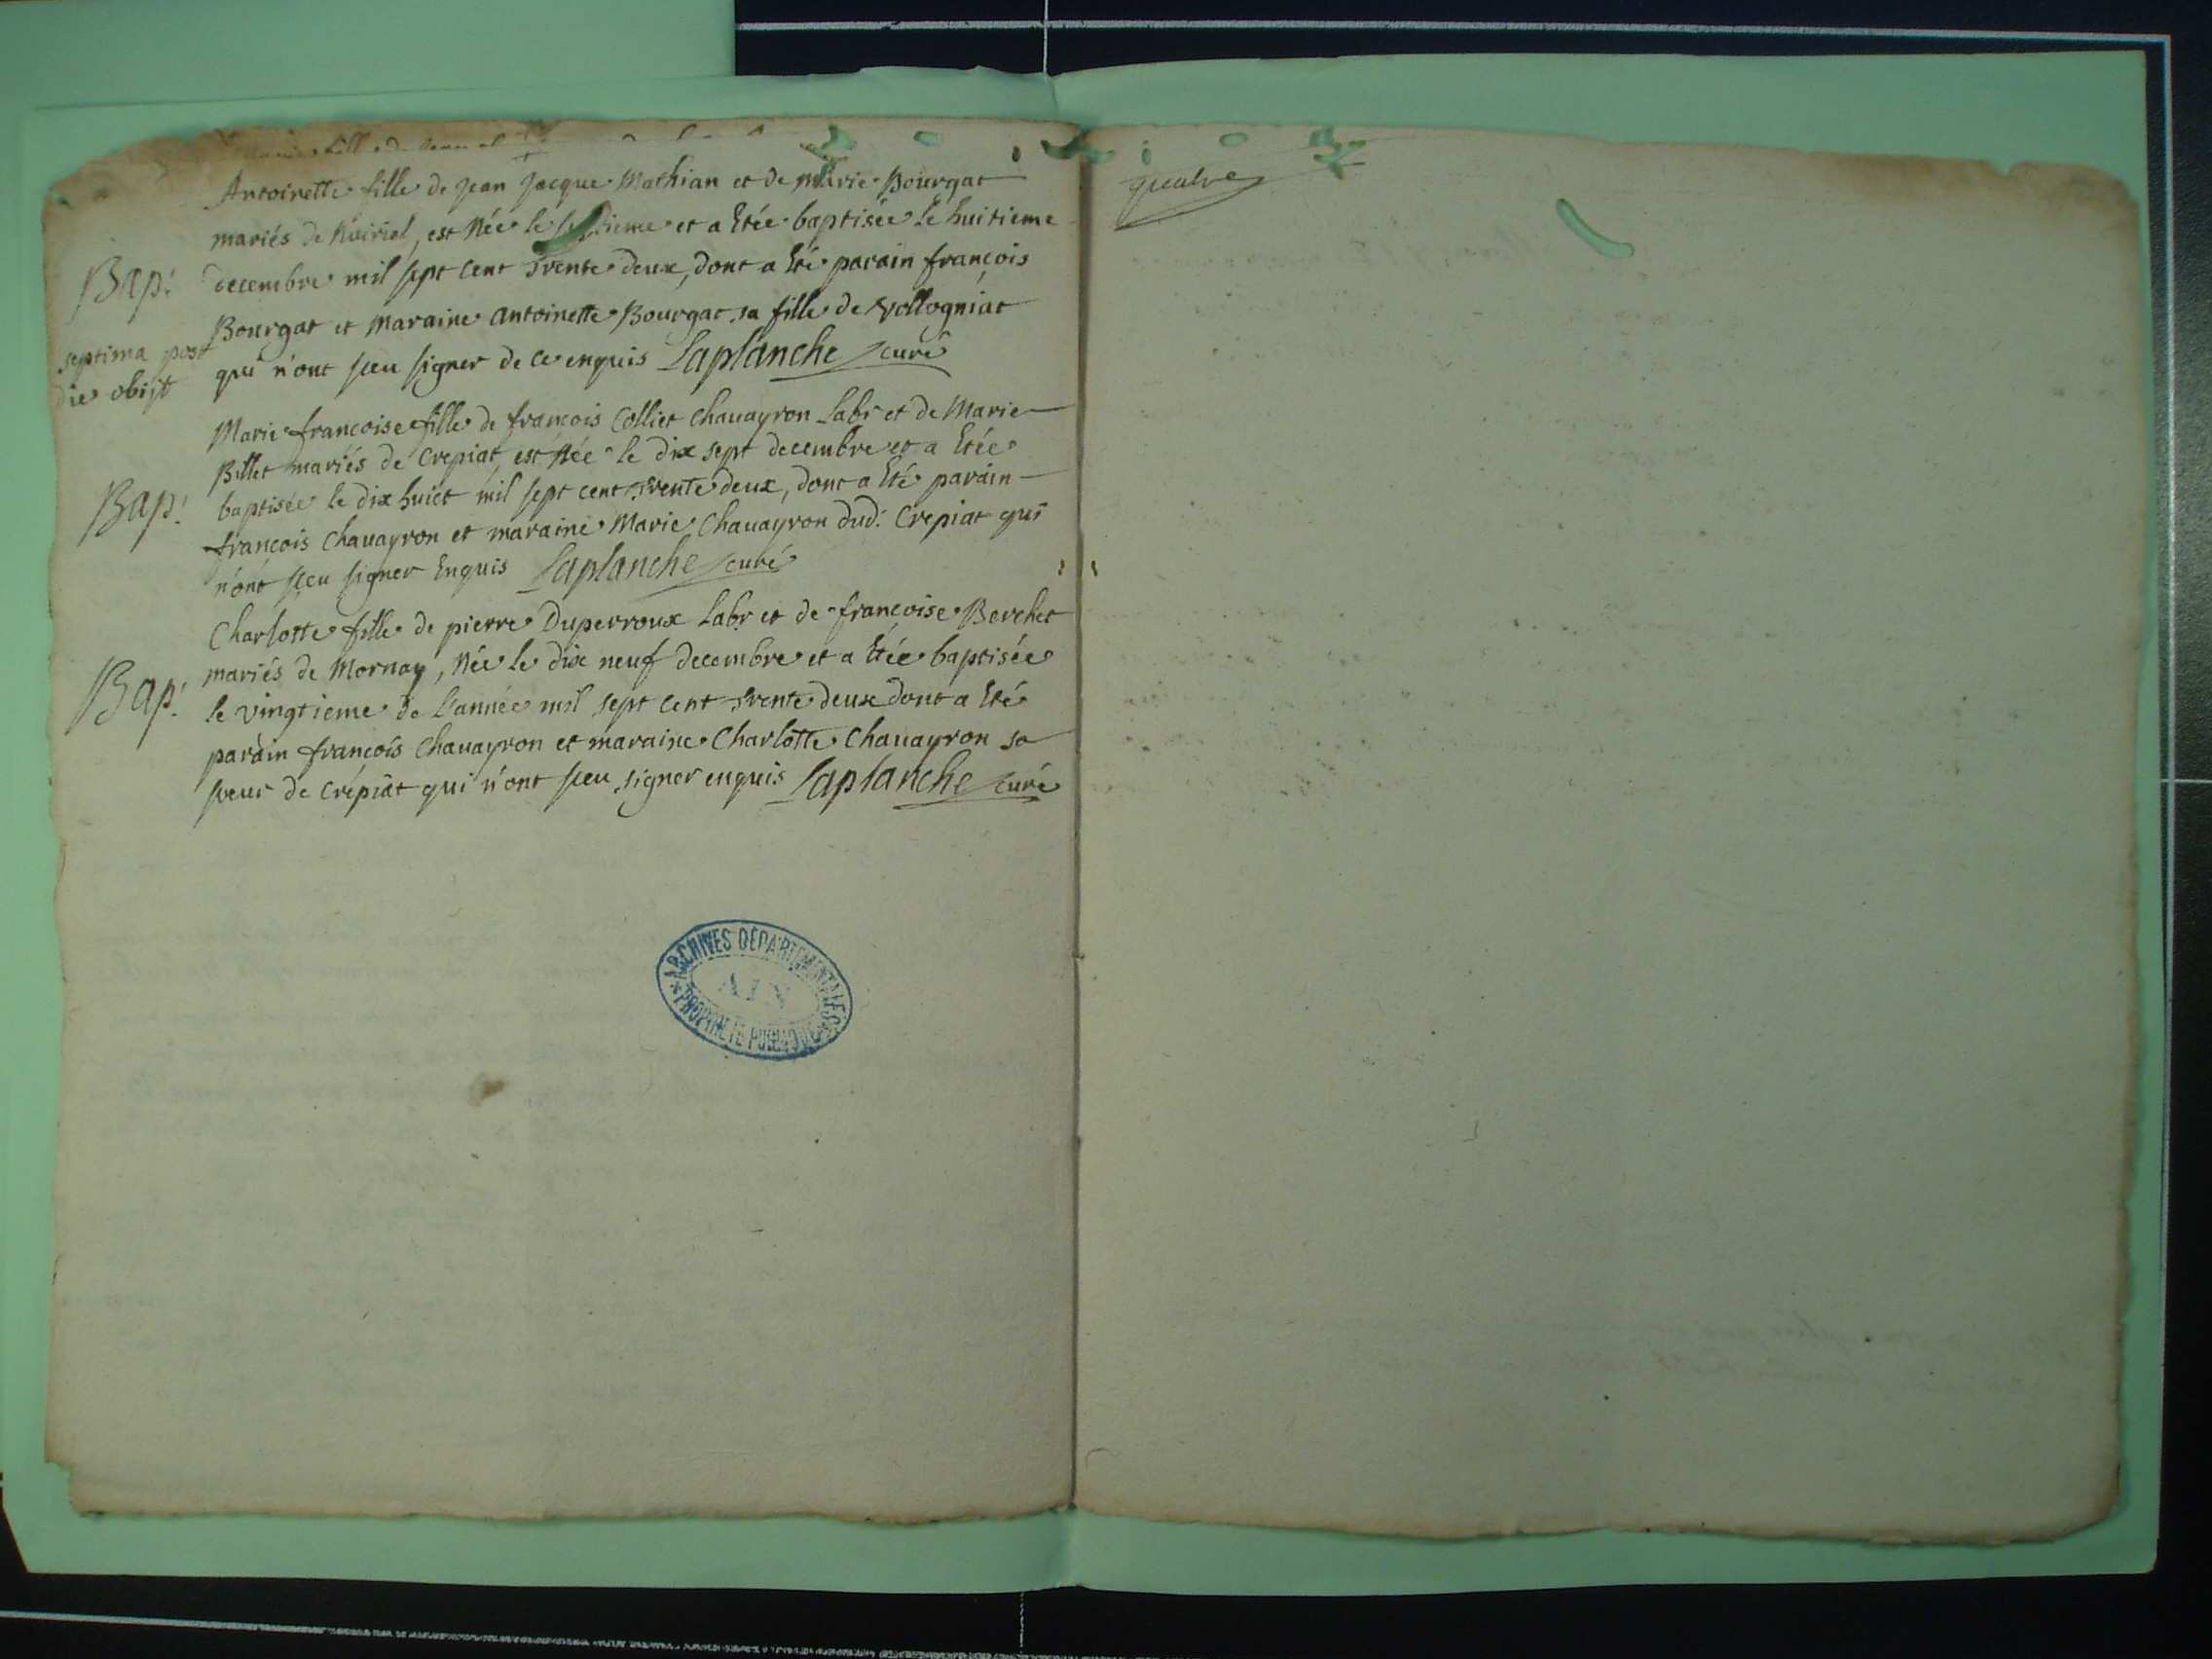 fille de
Antoinette fille de Jean Jacque Mathian et de Marie Bourgat
mariés de Noiriel, est Née le septieme et a Etée baptisée le huitieme
Bap:
decembre mil sept cent trente deux, dont a Eté parain françois
Bourgat et Maraine Antoinette Bourgat sa fille de Vollogniat
septima post
die obijt
qui n'ont sceu signer de ce enquis Laplanche curé
Marie francoise fille de françois Colliet Chavayron Labr et de Marie
Billet mariés de Crepiat, est Née le dix sept decembre et a Etée
Bap:
baptisée le dix huict mil sept cent trente deux, dont a Eté parain
francois Chavayron et maraine Marie Chavayron dud: Crepiat qui
n'ont sceu signer Enquis Laplanche curé
Charlotte fille de pierre Duperroux Labr et de françoise Berchet
mariés de Mornay, Née le dix neuf decembre et a Etée baptisée
Bap:
le vingtieme de l'année mil sept cent trente deux dont a Eté
parain francois Chavayron et maraine Charlotte Chavayron sa
soeur de Crépiat qui n'ont sceu signer enquis Laplanche curé
ARCHIVES DÉPARTEMENTALES
AIN
PROPRIÉTÉ PUBLIQUE
quatre